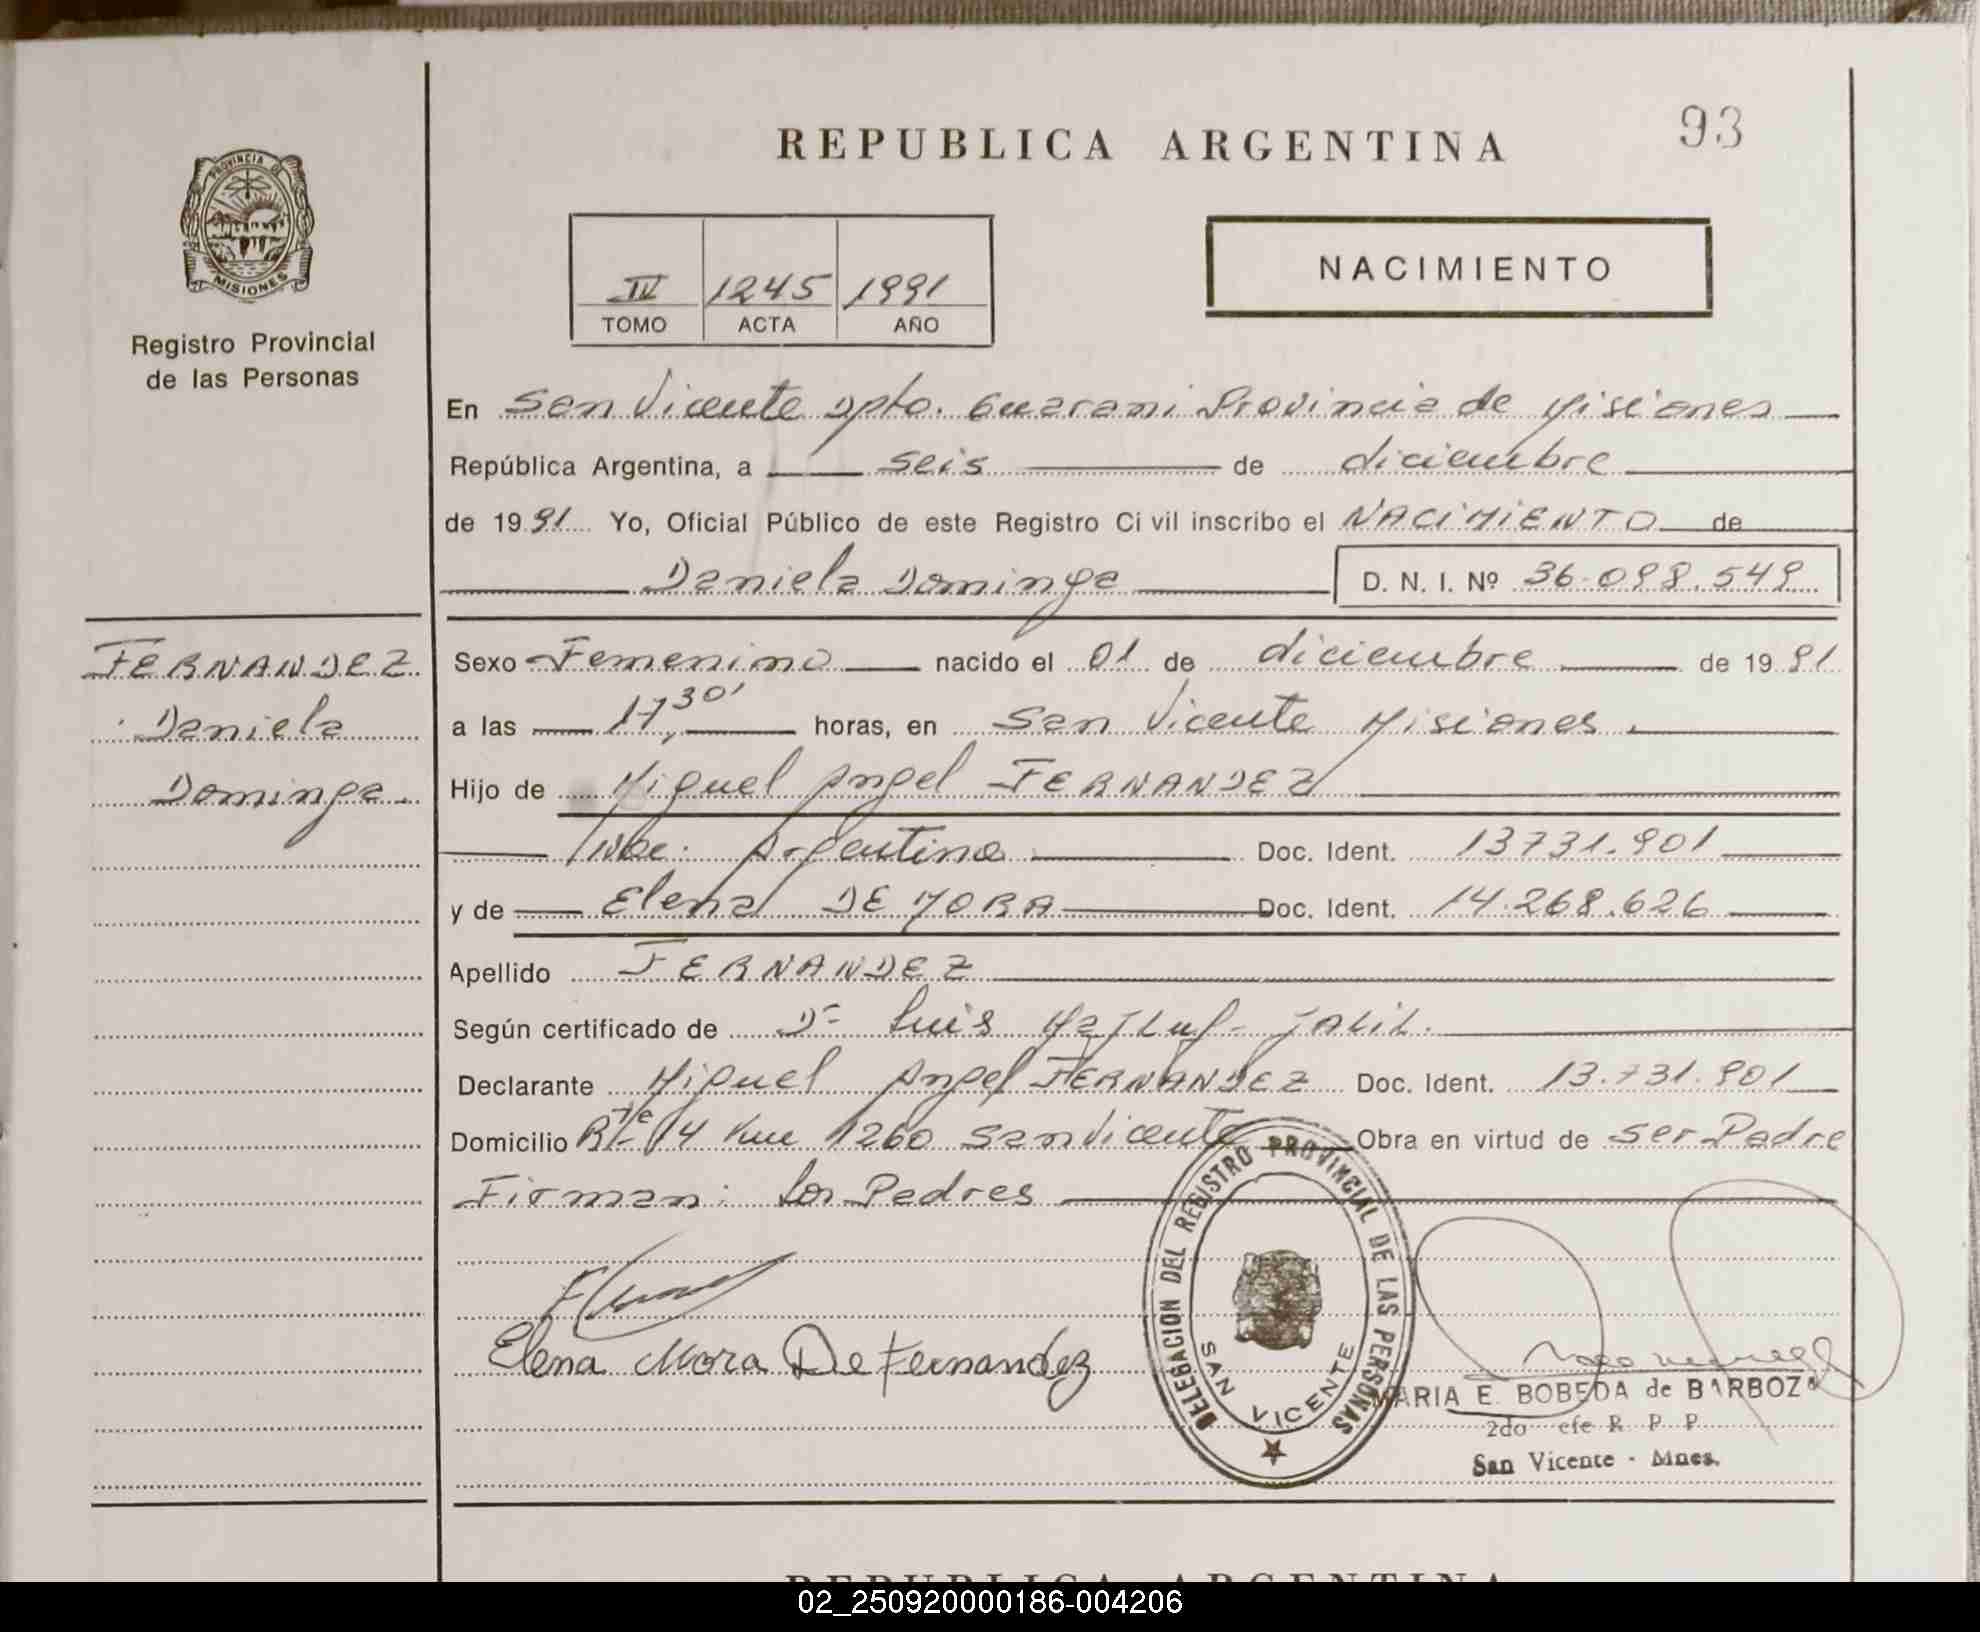 REPUBLICA ARGENTINA
93
PROVINCIA DE
MISIONES
Registro Provincial
de las Personas
IV 1245 1991
TOMO ACTA AÑO
NACIMIENTO
En San Vicente Dpto. Guarani Provincia de Misiones
República Argentina, a seis de diciembre
de 1991 Yo, Oficial Público de este Registro Civil inscribo el NACIMIENTO de
Daniela Dominga D. N. I. Nº 36.098.549
FERNANDEZ
Daniela
Dominga.
Sexo Femenino nacido el 01 de diciembre de 1991
a las 17,30' horas, en San Vicente Misiones
Hijo de Miguel Angel FERNANDEZ
Argentina Doc. Ident. 13731.901
y de Elena DE MORA Doc. Ident. 14.268.626
Apellido FERNANDEZ
Según certificado de Dr Luis JALIL.
Declarante Miguel Angel FERNANDEZ Doc. Ident. 13.731.901
Domicilio Rta 14 Km 1260 San Vicente Obra en virtud de ser Padre
Firman: Los Padres
Elena Mora De Fernandez
DELEGACION DEL REGISTRO PROVINCIAL DE LAS PERSONAS
SAN VICENTE
MARIA E. BOBEDA de BARBOZA
2do efe R. P. P.
San Vicente - Mnes.
REPUBLICA ARGENTINA
02_250920000186-004206